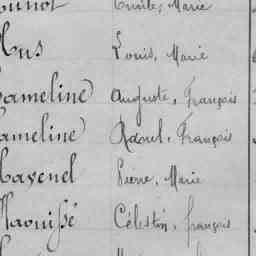 Emile, Marie
Hus Louis, Marie
Hameline Auguste, François
Hameline Raoul, François
Havenel Pierre, Marie
Haouissé Célestin, françois